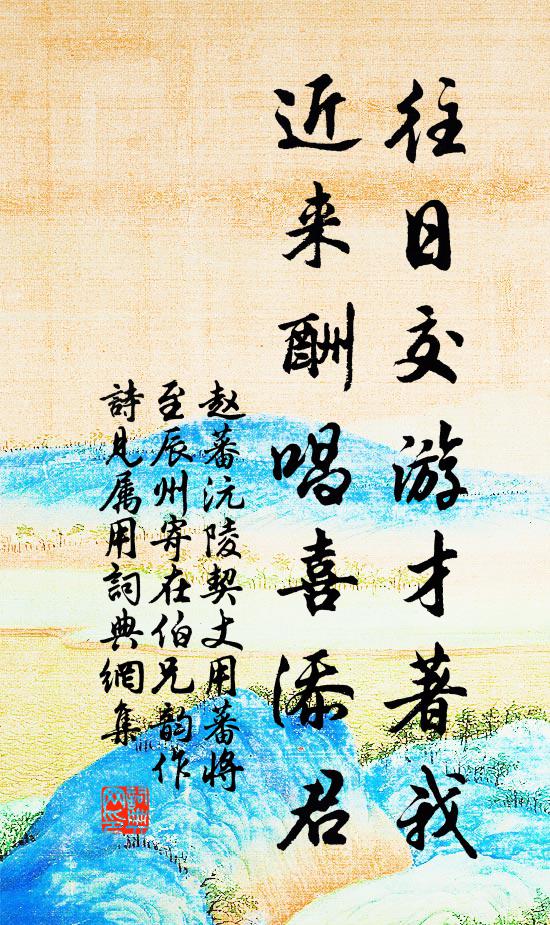 往日交游才著我
近来酬唱喜添君
赵蕃沅陵契丈用蕃将
至辰州寄在伯兄韵作
詩見属用詞典網集